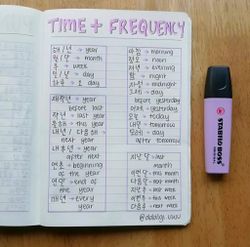 TIME + FREQUENCY
해/년 → year
월/달 → month
주 → week
일/날 → day
하루 → 1 day
재작년 → year
before last
작년 → last year
올해 → this year
내년/다음해 →
next year
내후년 → year
after next
연초 → beginning
of the year
연말 → end of
the year
매년 → every
year
아침 → morning
정오 → noon
저녁 → evening
밤 → night
자정 → midnight
day before
yesterday
어제 → yesterday
오늘 → today
내일 → tomorrow
모레 → day
after tomorrow
지난달 → last
month
이번달 → this month
다음달 → next month
지난주 → last week
이번주 → this week
다음주 → next week
STABILO BOSS